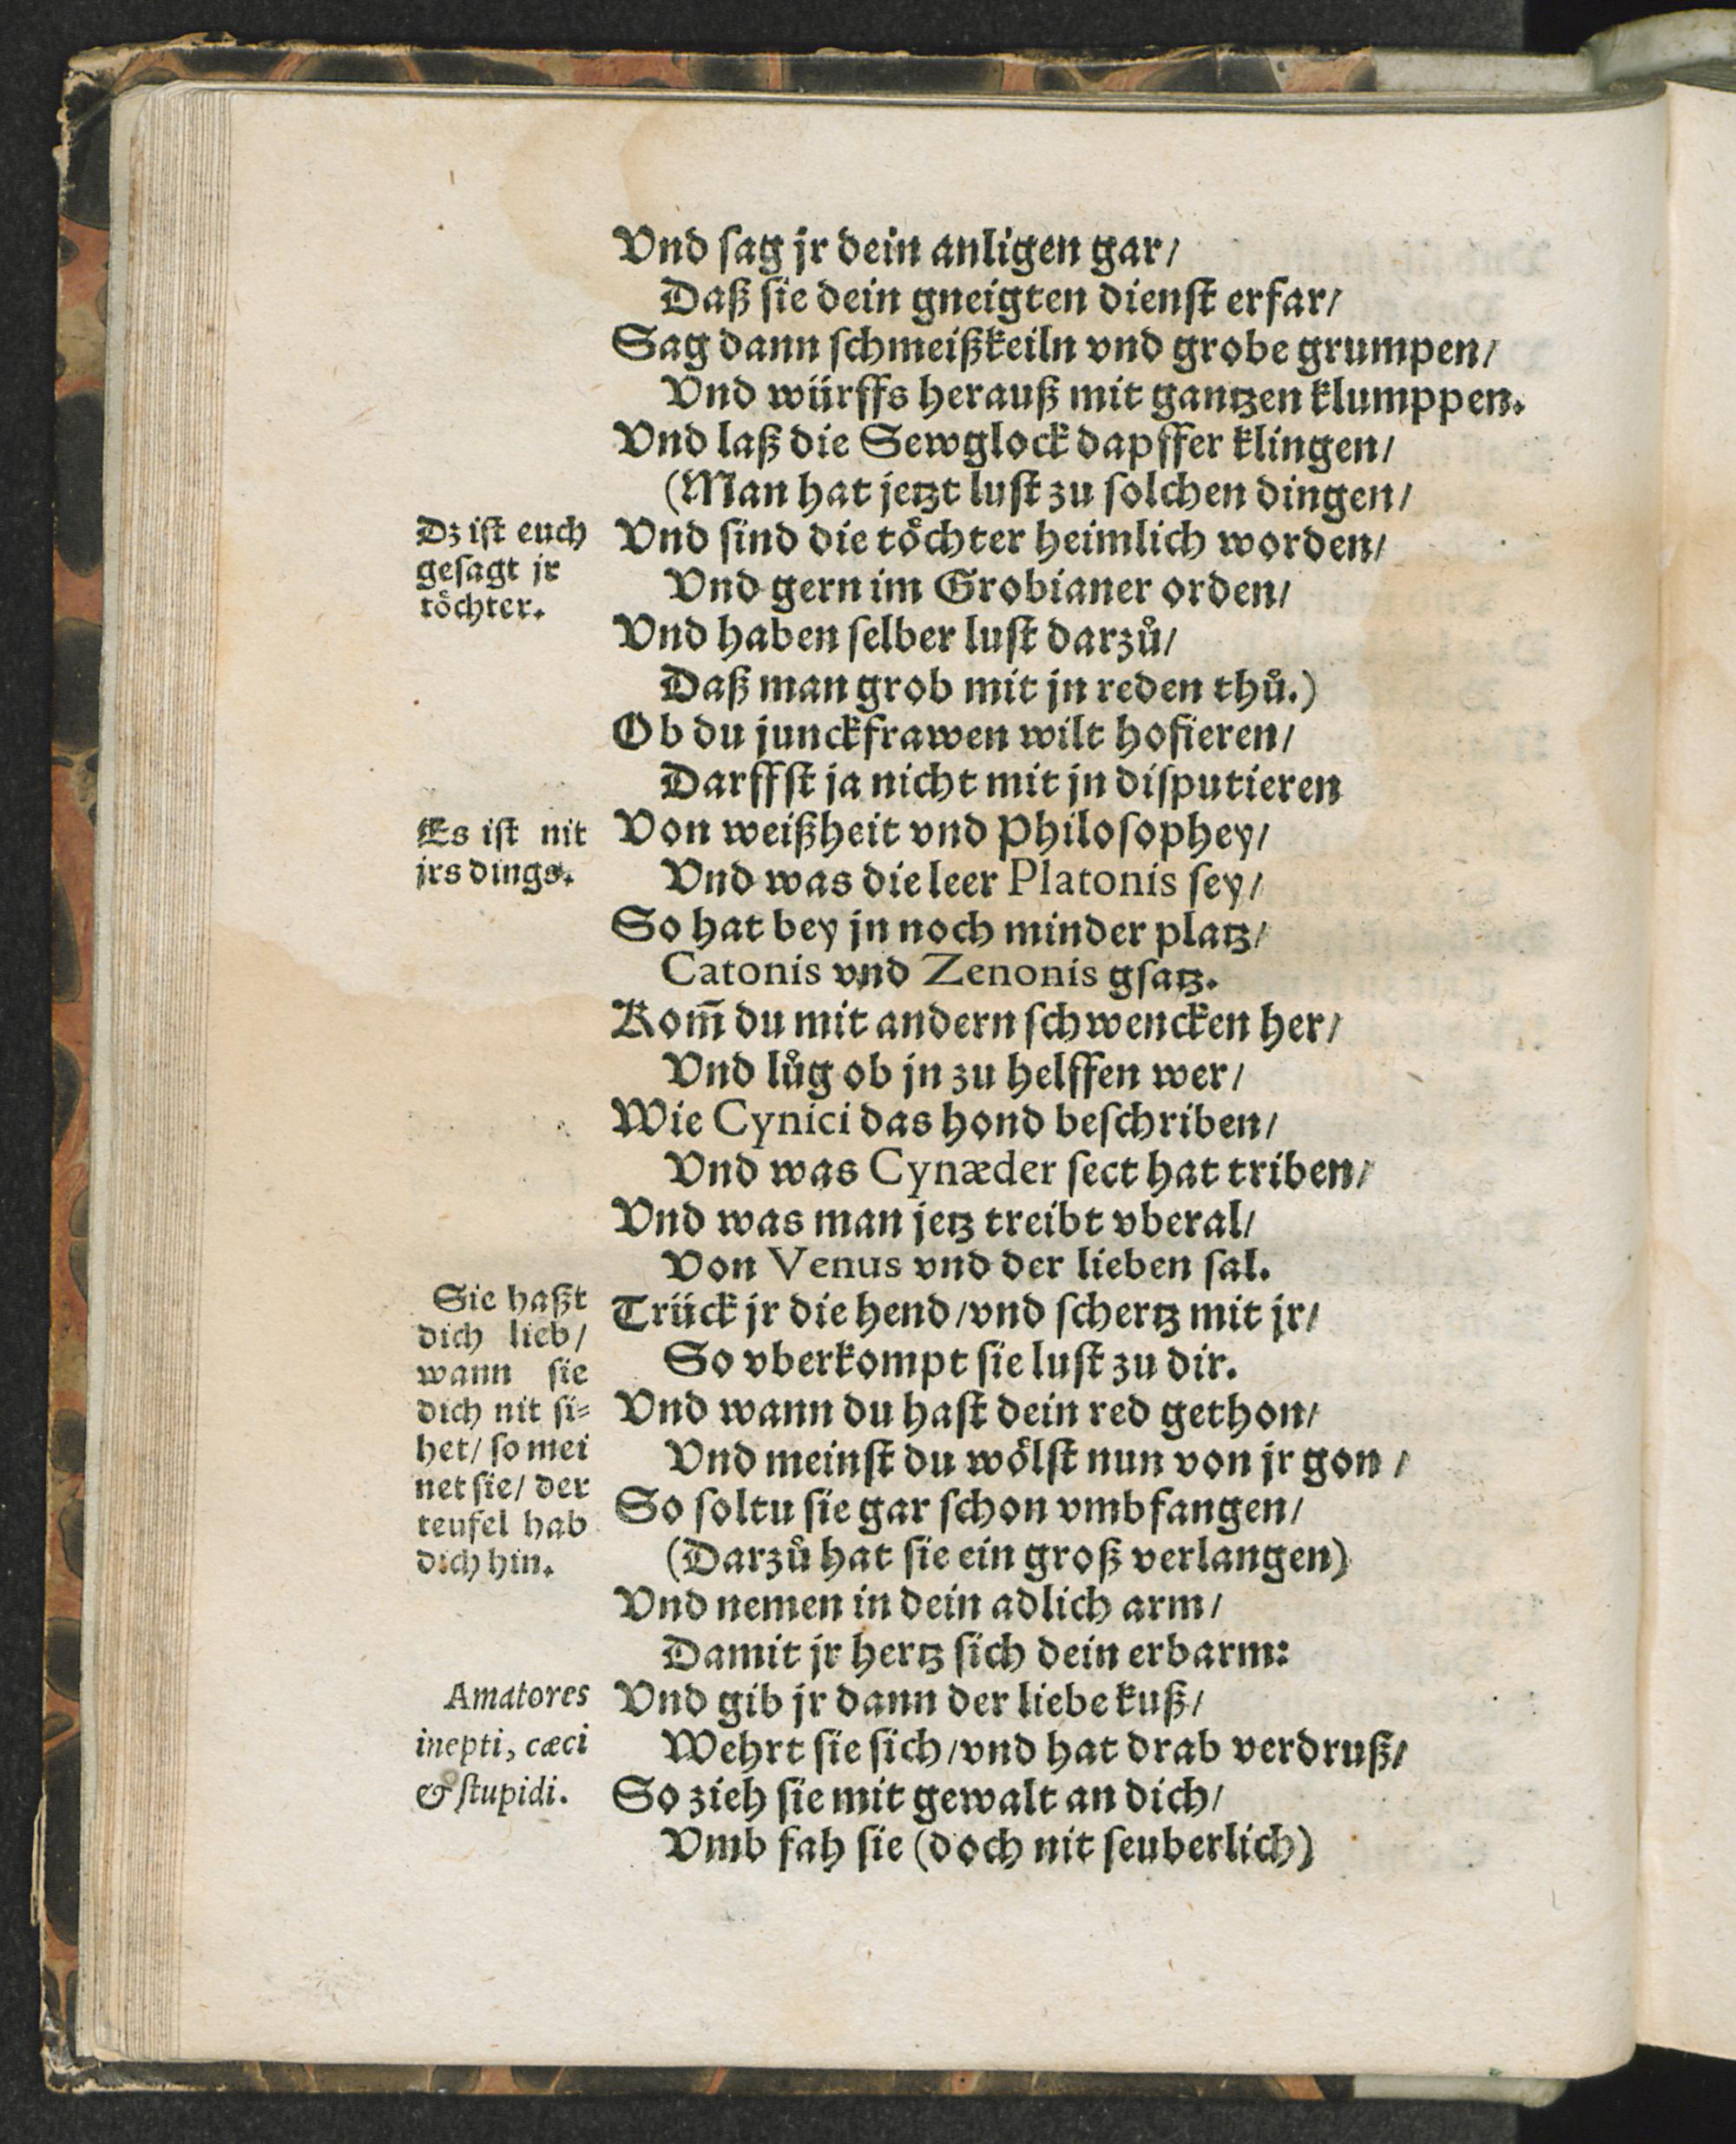 Vnd ſag jr dein anligen gar/
Daß ſie dein gneigten dienſt erfar/
Sag dann ſchmeißkeiln vnd grobe grumpen/
Vnd würffs herauß mit gantzen klumppen.
Vnd laß die Sewglock dapffer klingen/
(Man hat jetzt luſt zu ſolchen dingen/
Vnd ſind die toͤchter heimlich worden/
Vnd gern im Grobianer orden/
Vnd haben ſelber luſt darzuͦ/
Daß man grob mit jn reden thuͦ.)
Ob du junckfrawen wilt hofieren/
Darffſt ja nicht mit jn diſputieren
Von weißheit vnd Philoſophey/
Vnd was die leer Platonis ſey/
So hat bey jn noch minder platz/
Catonis vnd Zenonis gſatz.
Kom̄ du mit andern ſchwencken her/
Vnd luͦg ob jn zu helffen wer/
Wie Cynici das hond beſchriben/
Vnd was Cynæder ſect hat triben/
Vnd was man jetz treibt vberal/
Von Venus vnd der lieben ſal.
Trück jr die hend/vnd ſchertz mit jr/
So vberkompt ſie luſt zu dir.
Vnd wann du haſt dein red gethon/
Vnd meinſt du woͤlſt nun von jr gon/
So ſoltu ſie gar ſchon vmbfangen/
(Darzuͦ hat ſie ein groß verlangen)
Vnd nemen in dein adlich arm/
Damit jr hertz ſich dein erbarm:
Vnd gib jr dann der liebe kuß/
Wehrt ſie ſich/vnd hat drab verdruß/
So zieh ſie mit gewalt an dich/
Vmb fah ſie (doch nit ſeuberlich)
Dz iſt euch
geſagt jr
toͤchter.
Es iſt nit
jrs dings.
Sie haßt
dich lieb/
wann ſie
dich nit ſi⸗
het/ ſo mei
net ſie/ der
teufel hab
dich hin.
Amatores
inepti, cæci
& ſtupidi.